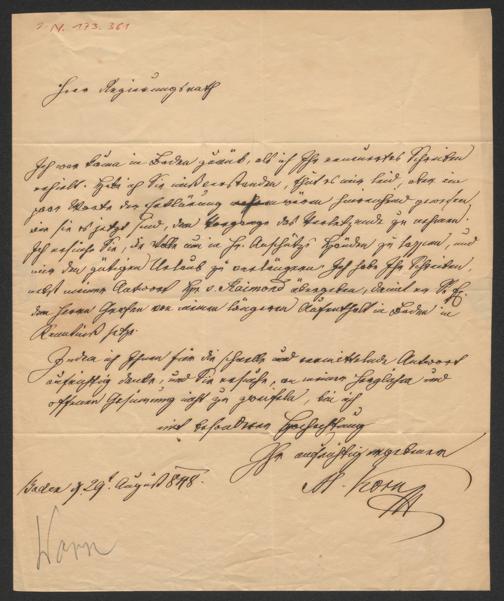 N. 173.361
Herr Regierungsrath
Ich war kaum in Baden zurück, als ich Ihr erneuertes Schreiben
erhielt. Habe ich Sie mißverstanden, thut es mir leid, aber ein
paar Worte der Erklärung wären hinreichend gewesen,
wie sie es jetzt sind, dem Vorgange das Verletzende zu nehmen.
Ich ersuche Sie, die Rolle nun in H. Anschütz Händen zu lassen, und
mir den gütigen Urlaub zu verlängern. Ich habe Ihr Schreiben,
nebst meiner Antwort H. v. Raimond übergeben, damit er
den Herrn Grafen von meinem längeren Aufenthalt in Baden in
Kenntniß setze.
Indem ich Ihnen für die schnelle und vermittelnde Antwort
aufrichtig danke, und Sie ersuche, an meiner herzlichen und
offenen Gesinnung nicht zu zweifeln, bin ich
mit besonderer Hochachtung
Ihr aufrichtig ergebener
M. Korn
Baden d. 29t August 848.
Korn